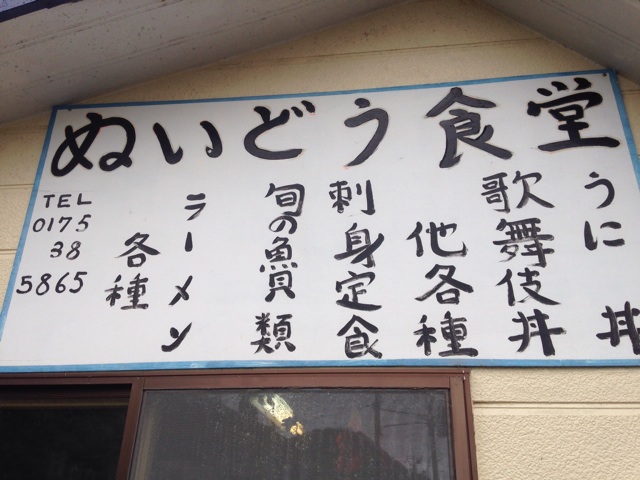 ぬいどう食堂
うに丼
歌舞伎丼
他各種
刺身定食
旬の魚貝類
ラーメン
各種
TEL
0175
38
5865